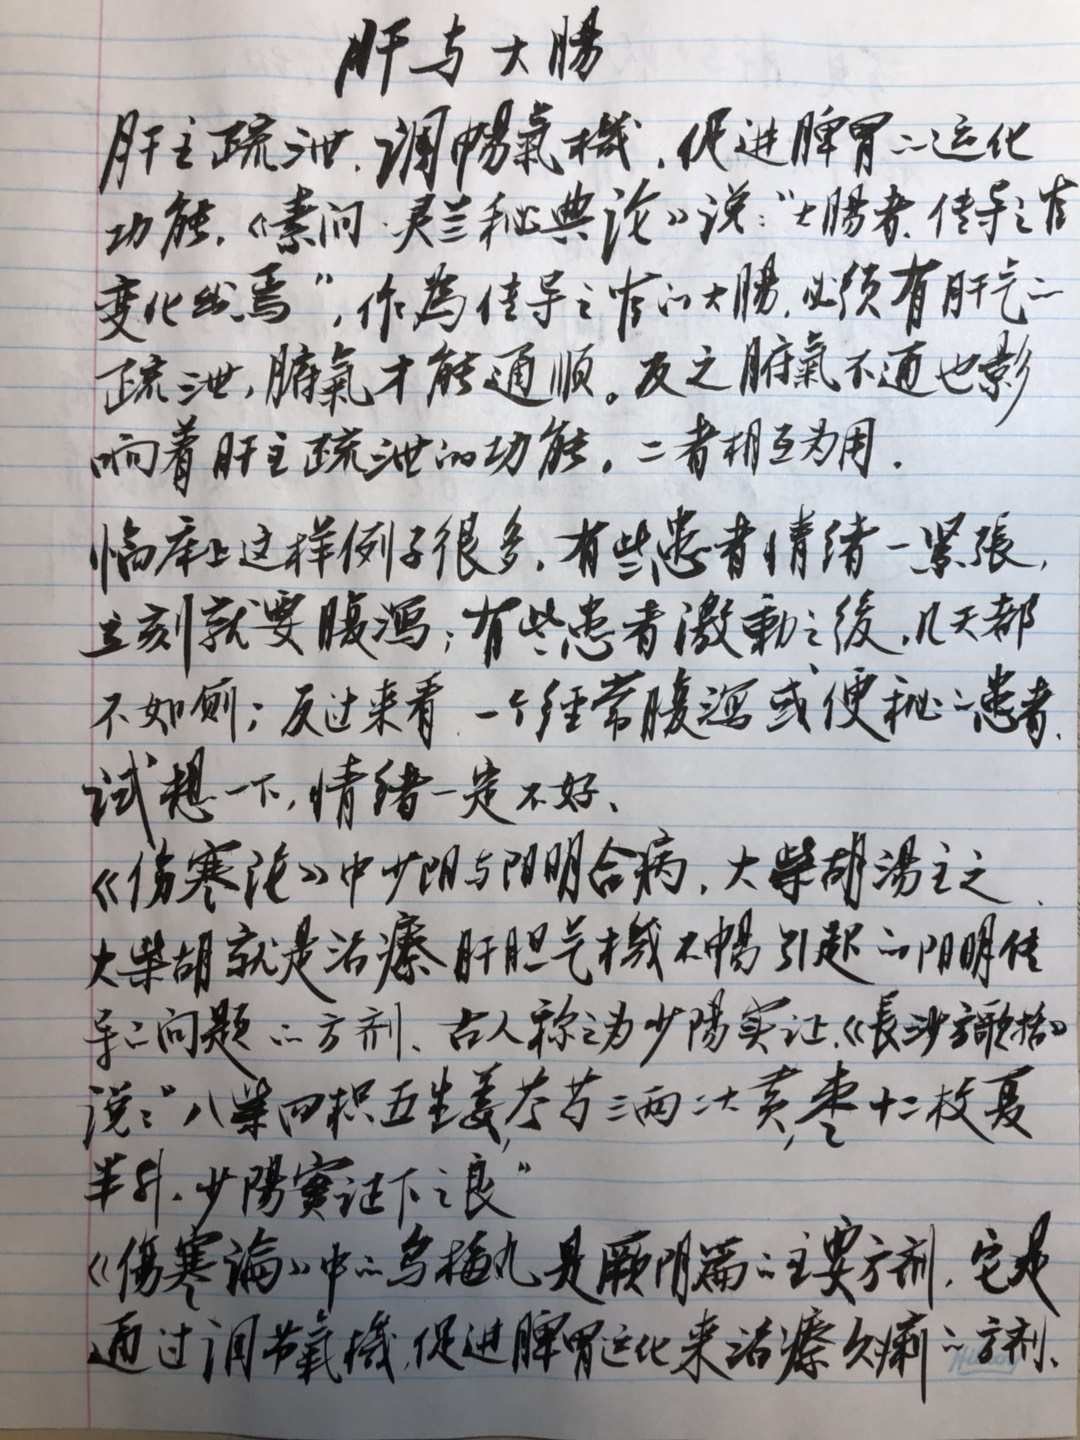 肝与大腸
肝主疏泄，调暢氣機，促进脾胃的运化
功能，《素问·灵兰秘典论》说：“大腸者，传导之官
变化出焉”，作為传导之官的大腸，必须有肝气的
疏泄，腑氣才能通順。反之腑氣不通也影
响着肝主疏泄的功能。二者相互为用．
临床上这样例子很多，有些患者情绪一紧張，
立刻就要腹泻；有些患者激動之後，几天都
不如厕；反过来看，一个经常腹泻或便秘的患者，
试想一下，情绪一定不好、
《伤寒论》中少阳与阳明合病，大柴胡湯主之、
大柴胡就是治療肝胆气機不暢引起的阳明传
导的问题的方剂、古人称之为少陽实证，《長沙方歌括》
说：“八柴四枳五生姜，芩芍三两二大黄，枣十二枚夏
半升，少陽實证下之良”
《傷寒論》中的乌梅丸是厥阴篇的主要方剂，它是
通过调节氣機，促进脾胃运化来治療久痢的方剂、